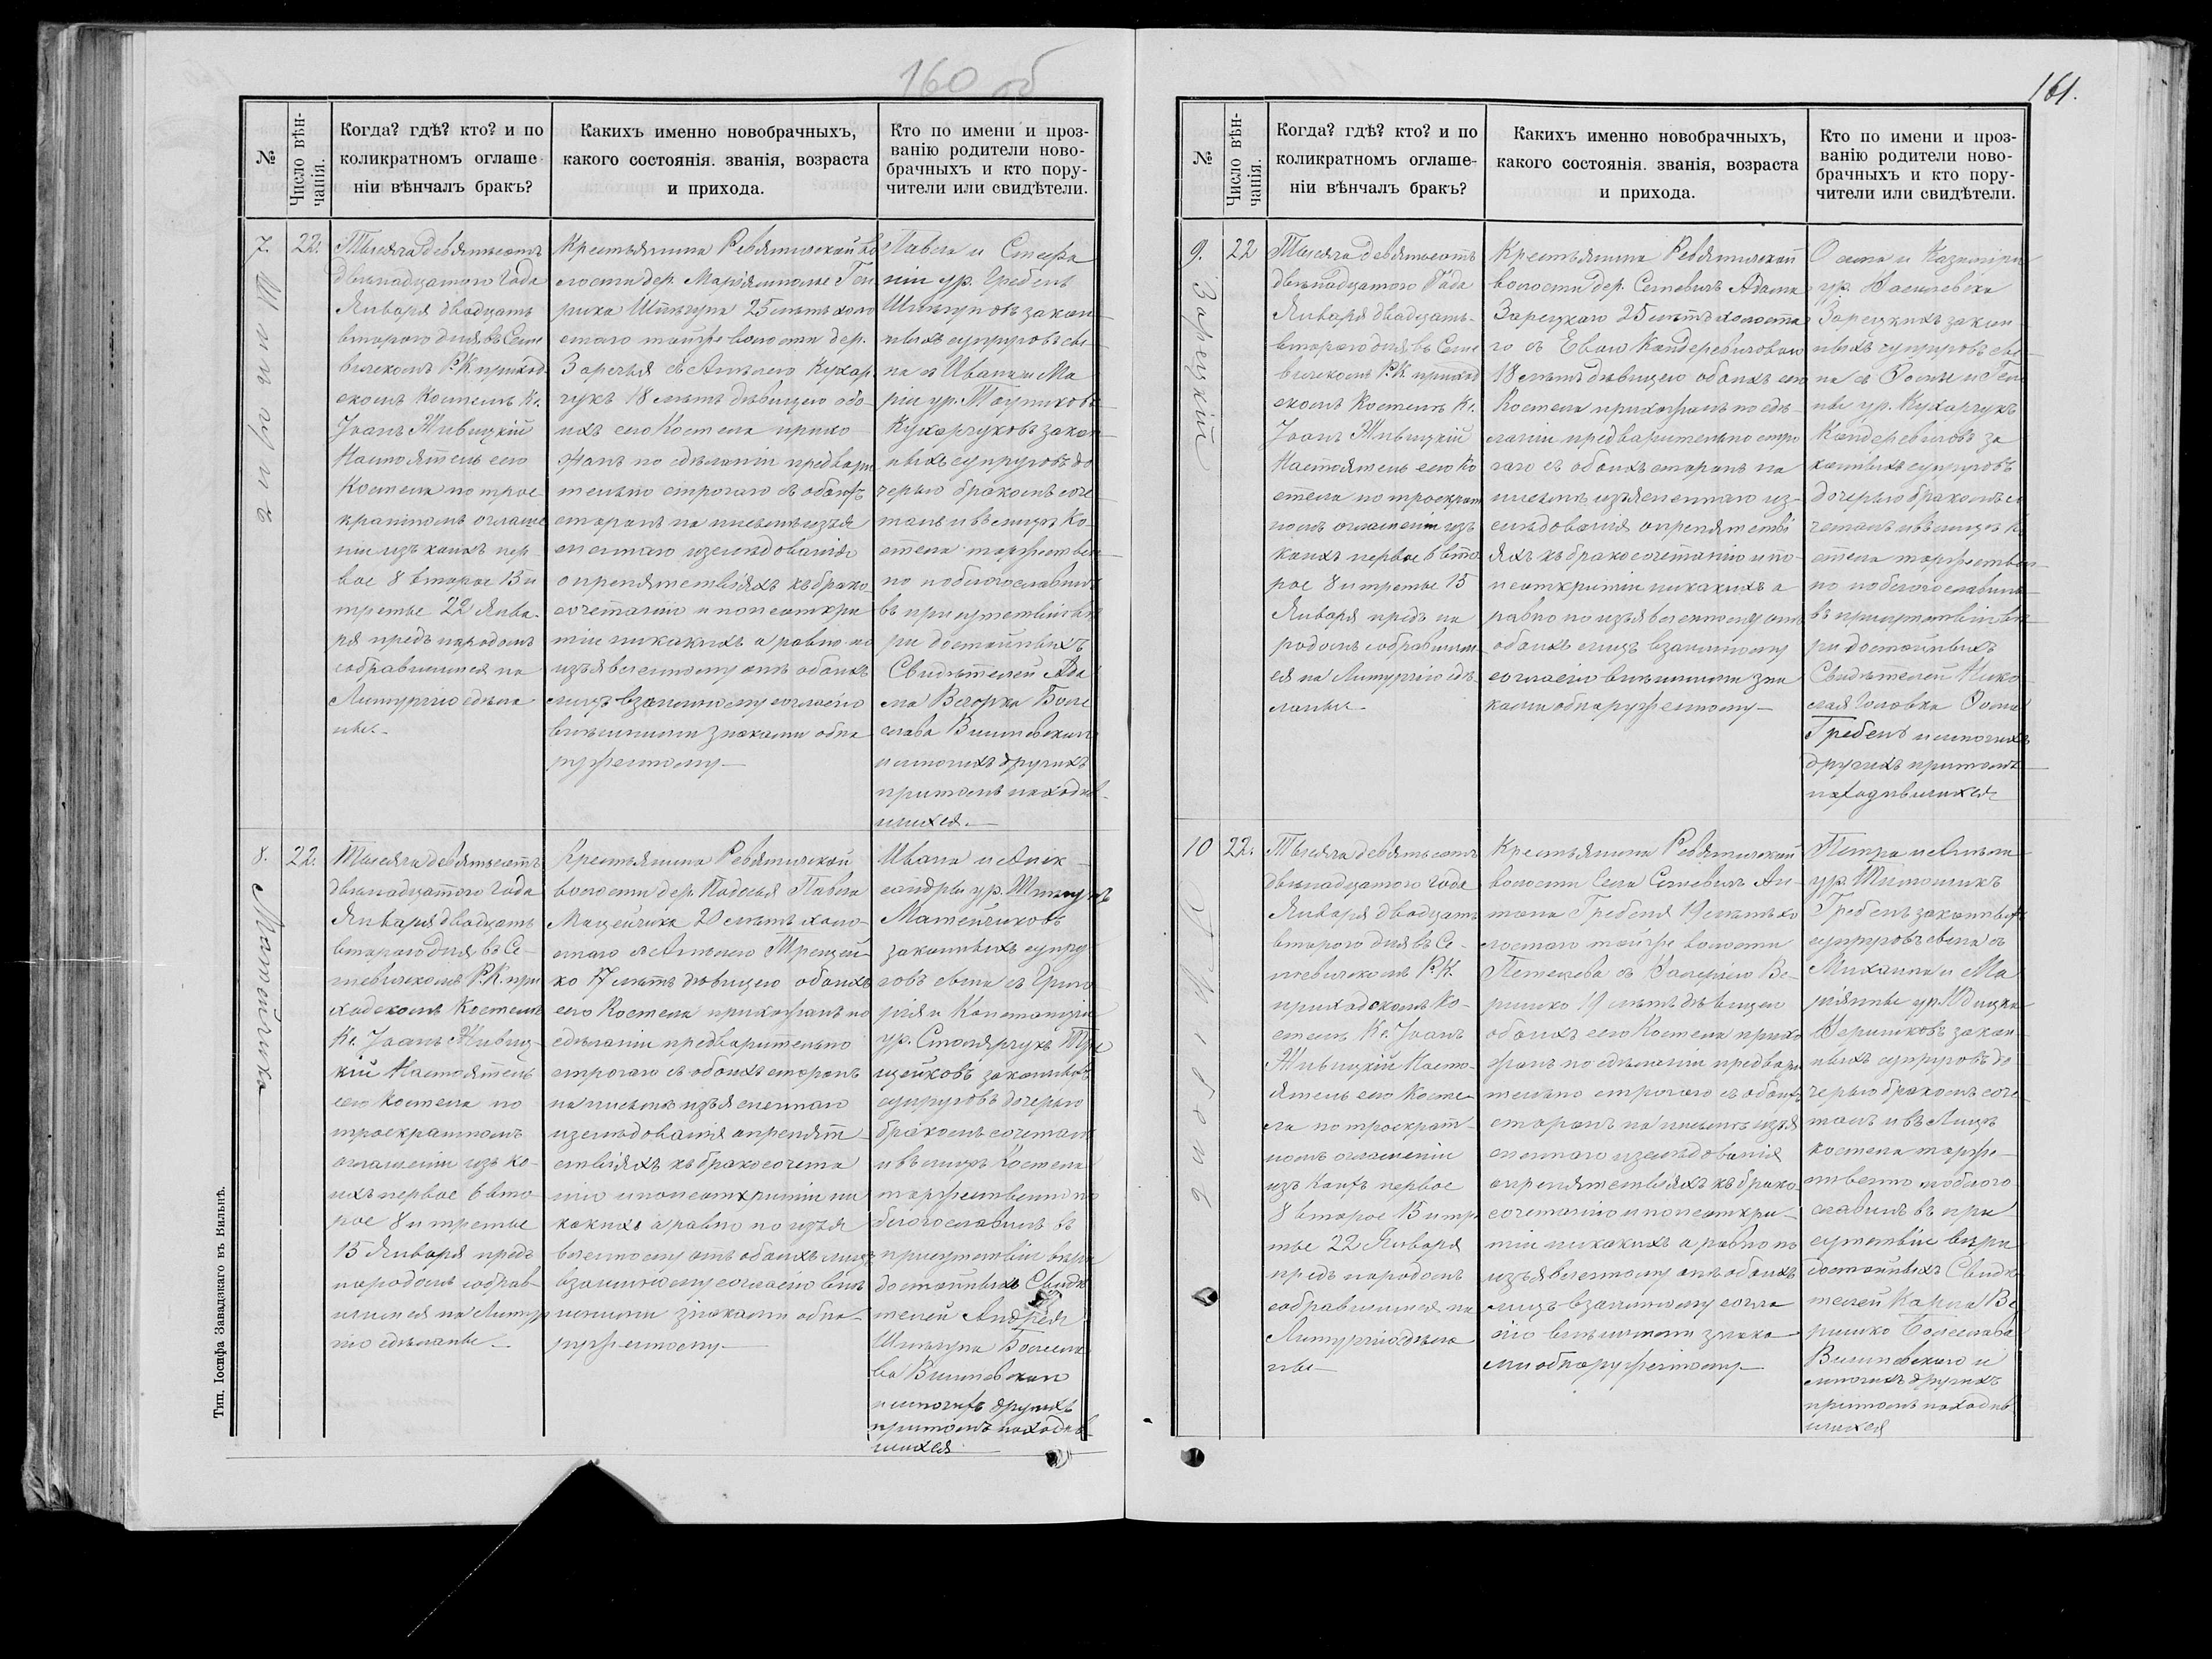 160 об
№
Число вѣн-
чанія.
Когда? гдѣ? кто? и по
коликратномъ оглаше
ніи вѣнчалъ бракъ?
Какихъ именно новобрачныхъ,
какого состоянія. званія, возраста
и прихода.
Кто по имени и проз-
ванію родители ново-
брачныхъ и кто пору-
чители или свидѣтели.
7.
22.
Тысяча девятьсотъ
двѣнадцатого Года
Января двадцать
второго дня въ Сехне
вичскомъ Р.К. приход
скомъ Костелѣ Кс.
Іоанъ Живицкій
Настоятель сего
Костела по трое
кратномъ оглаше
ніи изъ коихъ пер-
вое 8 второе 15 и
третье 22 Янва-
ря предъ народомъ
собравшимся на
Литургію сдѣла
ны.-
Крестьянина Ревятичской во
лости дер. Маріямполье Ген
риха Шпигуна 25 лѣтъ холо
стого тойже волости дер.
Зарѣчья съ Анелею Кухар
чукъ 18 лѣтъ дѣвицею обо-
ихъ сего Костела прихо
жанъ по сдѣланіи предвари
тельно строгаго съ обоихъ
сторонъ на письмѣ изъя
сненнаго изслѣдованія
о препятствіяхъ къ брако
сочетанію и по неоткры
тіи никакихъ а равно по
изъявленному отъ обоихъ
лицъ взаимному согласію
внѣшними знаками обна
руженному—
Павла и Стефа
ніи ур. Гребень
Шпигуновъ закон
ныхъ супруговъ сы
на съ Ивана и Ма
ріи ур.
Кухарчуковъ закон
ныхъ супруговъ до
черью бракомъ соче
талъ и въ лицѣ Ко
стела торжествен
но поблагословилъ
въ присутствіи вѣ
ри достойныхъ
Свидѣтелей Ада
ма Болe
слава Вишневскаго
и многихъ другихъ
притомъ находив-
шихся.—
8.
22.
Матейчико
Тысяча девятьсотъ
двѣнадцатого Года
Января двадцать
второго дня въ Се-
хневичскомъ Р.К. при
ходскомъ Костелѣ
Кс. Іоанъ Живиц-
кій Настоятель
сего Костела по
троекратномъ
оглашеніи изъ ко-
ихъ первое 6 вто-
рое 8 и третье
15 Января предъ
народомъ собрав-
шимся на Литур
гію сдѣланы.—
Крестьянина Ревятичской
волости дер. Подлѣсья Павла
Мацейчика 20 лѣтъ холо-
стого съ Анелею Трещей
ко 17 лѣтъ дѣвицею обоихъ
сего Костела прихожанъ по
сдѣланіи предварительно
строгаго съ обоихъ сторонъ
на письмѣ изъясненнаго
изслѣдованія о препят
ствіяхъ къ бракосочета
нію и по неоткрытіи ни
какихъ а равно по изъя
вленному отъ обоихъ лицъ
взаимному согласію внѣ
шними знаками обна-
руженному—
Ивана и Алек-
сандры ур. Шпигунъ
Матейчиковъ
законныхъ супру
говъ сына съ Григо
рія и Константіи
ур. Столярчукъ Тре
щейковъ законныхъ
супруговъ дочерью
бракомъ сочеталъ
и въ лицѣ Костела
торжественно по
благословилъ въ
присутствіи вѣри
достойныхъ Свидѣ
телей Андрея
Шпигуна Болесла
ва Вишневскаго
и многихъ другихъ
притомъ находив
шихся
Тип. Іосифа Завадзкаго въ Вильнѣ.
161.
№
Число вѣн-
чанія.
Когда? гдѣ? кто? и по
коликратномъ оглаше-
ніи вѣнчалъ бракъ?
Какихъ именно новобрачныхъ,
какого состоянія. званія, возраста
и прихода.
Кто по имени и проз-
ванію родители ново-
брачныхъ и кто пору-
чители или свидѣтели.
9.
22
Зарецкій
Тысяча девятьсотъ
двѣнадцатого Года
Января двадцать
второго дня въ Сехне
вичскомъ Р.К. приход
скомъ Костелѣ Кс.
Іоанъ Живицкій
Настоятель сего Ко
стела по троекрат
номъ оглашеніи изъ
коихъ первое 6 вто
рое 8 и третье 15
Января предъ на
родомъ собравшим
ся на Литургію сдѣ
ланы—
Крестьянина Ревятичской
волости дер. Сехневичъ Адама
Зарецкаго 25 лѣтъ холосто
го съ Евою Кандеревичовою
18 лѣтъ дѣвицею обоихъ сего
Костела прихожанъ по сдѣ
ланіи предварительно стро
гаго съ обоихъ сторонъ на
письмѣ изъясненнаго из-
слѣдованія о препятстві
яхъ къ бракосочетанію и по
неоткрытіи никакихъ а
равно по изъявленному отъ
обоихъ лицъ взаимному
согласію внѣшними зна
ками обнаруженному—
Осипа и Казимiры
ур.
Зарецкихъ закон
ныхъ супруговъ сы
на съ Осипа и Ген
ур. Кухарчукъ
Кандеревичовъ за
конныхъ супруговъ
дочерью бракомъ со
четалъ и въ лицѣ Ко
стела торжествен
но поблагословилъ
въ присутствіи вѣ
ри достойныхъ
Свидѣтелей Нико
лая Головка Осипа
Гребень и многихъ
другихъ притомъ
находившихся
10
22.
Гребень
Тысяча девятьсотъ
двѣнадцатого года
Января двадцать
второго дня въ Се-
хневичскомъ Р.К.
приходскомъ Ко-
стелѣ Кс. Іоанъ
Живицкій Насто-
ятель сего Косте
ла по троекрат-
номъ оглашеніи
изъ коихъ первое
8 второе 15 и тре
тье 22 Января
предъ народомъ
собравшимся на
Литургію сдѣла
ны—
Крестьянина Ревятичской
волости Села Сехневичъ Ан-
тона Гребеня 19 лѣтъ хо
лостого тойже волости
съ Валеріею Ве-
ришко 19 лѣтъ дѣвицею
обоихъ сего Костела прихо
жанъ по сдѣланіи предвари
тельно строгаго съ обоихъ
сторонъ на письмѣ изъя
сненнаго изслѣдованія
о препятствіяхъ къ брако
сочетанію и по неоткры-
тіи никакихъ а равно по
изъявленному отъ обоихъ
лицъ взаимному согла
сію внѣшними знака
ми обнаруженному—
Петра и Анели
ур.
Гребень законныхъ
супруговъ сына съ
Михаила и Ма
ріянны ур. Юдицка
Веришковъ закон
ныхъ супруговъ до
черью бракомъ соче
талъ и въ Лицѣ
Костела торже-
ственно поблаго
славилъ въ при-
сутствіи вѣри
достойныхъ Свидѣ
телей Карла Ве
ришко Болеслава
Вишневскаго и
многихъ другихъ
притомъ находив
шихся